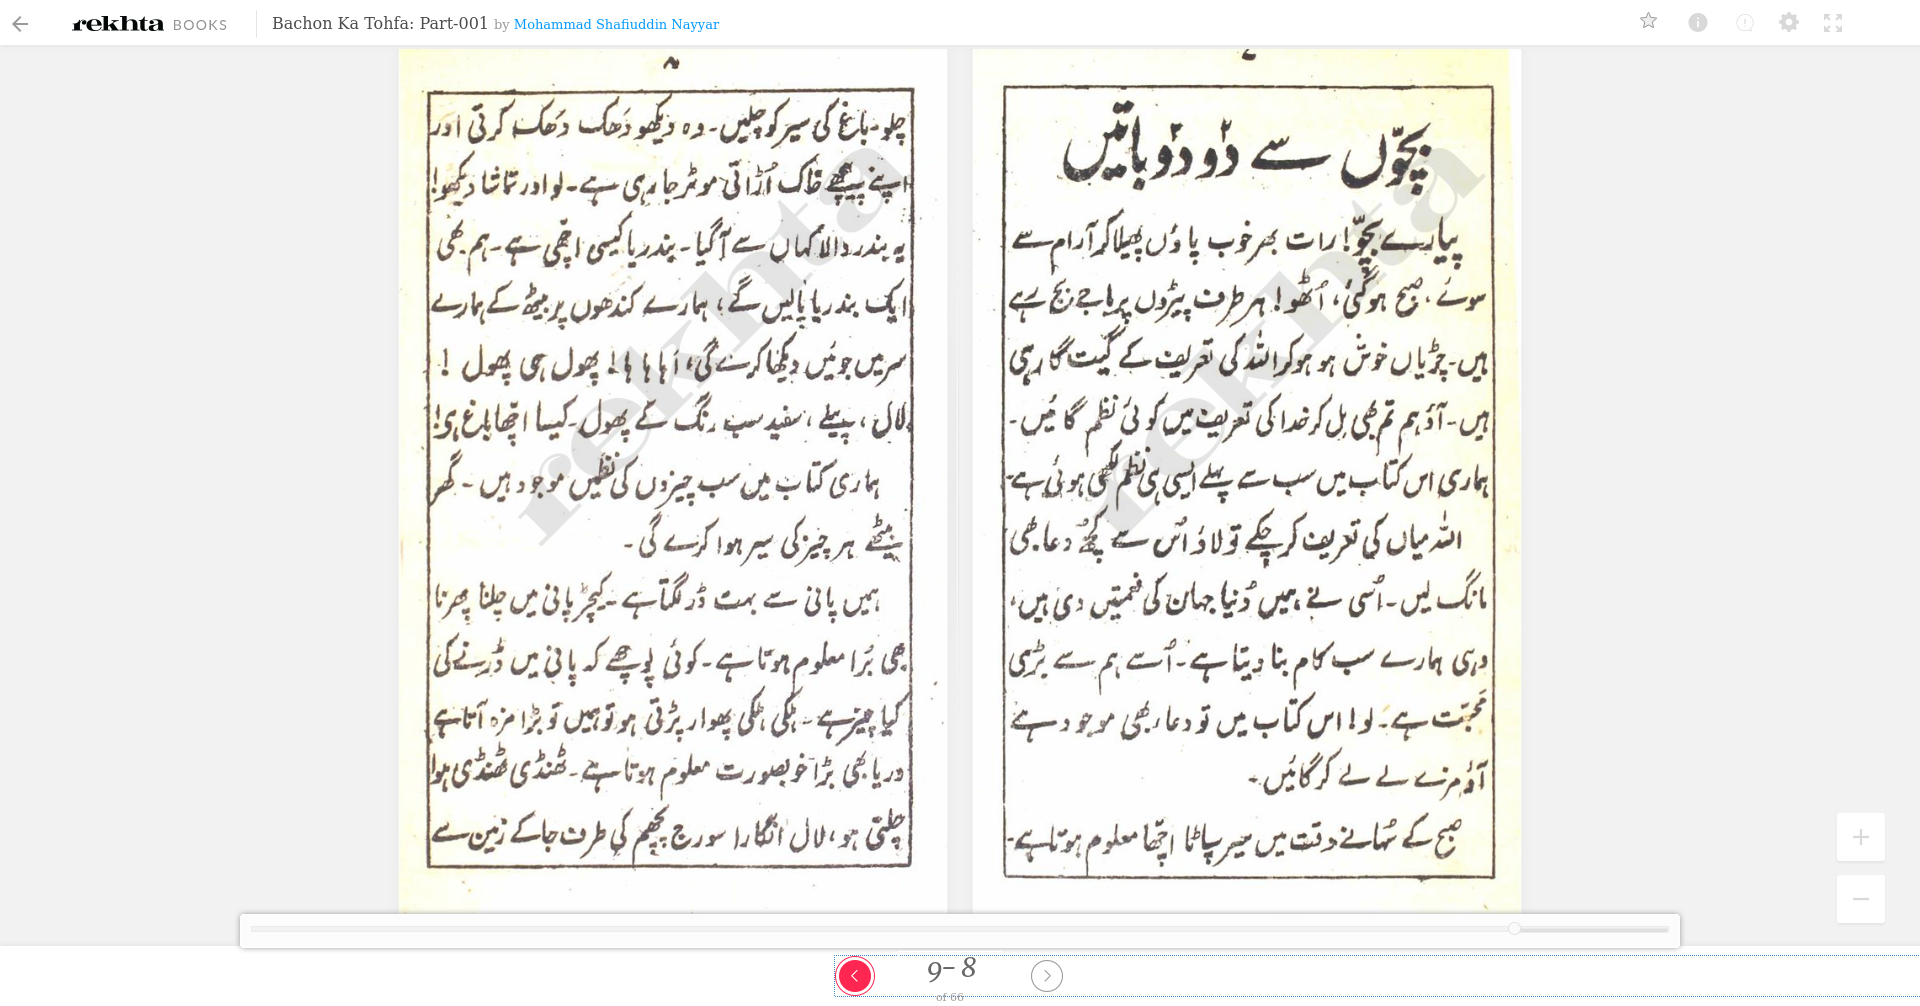 rekhta BOOKS Bachon Ka Tohfa: Part-001 by Mohammad Shafiuddin Nayyar
۷
بچّوں سے دو دو باتیں
پیارے بچّو! رات بھر خوب پاؤں پھیلا کر آرام سے
سوئے، صبح ہو گئی، اُٹھو! ہر طرف پیڑوں پر باجے بج رہے
ہیں۔ چڑیاں خوش ہو ہو کر اللہ کی تعریف کے گیت گا رہی
ہیں۔ آؤ ہم تم بھی مل کر خدا کی تعریف میں کوئی نظم گائیں۔
ہماری اس کتاب میں سب سے پہلے ایسی ہی نظم لکھی ہوئی ہے۔
اللہ میاں کی تعریف کر چکے تو لاؤ اُس سے کچھ دعا بھی
مانگ لیں۔ اُسی نے ہمیں دُنیا جہان کی نعمتیں دی ہیں،
وہی ہمارے سب کام بنا دیتا ہے۔ اُسے ہم سے بڑی
محبّت ہے۔ لو! اس کتاب میں تو دعا بھی موجود ہے
آؤ مزے لے لے کر گائیں۔
صبح کے سُہانے وقت میں سیر سپاٹا اچھّا معلوم ہوتا ہے۔
۸
چلو۔ باغ کی سیر کو چلیں۔ وہ دیکھو دَھک دَھک کرتی اور
اپنے پیچھے خاک اُڑاتی موٹر جا رہی ہے۔ لو اور تماشا دیکھو!
یہ بندر والا کہاں سے آ گیا۔ بندریا کیسی اچھّی ہے۔ ہم بھی
ایک بندریا پالیں گے؛ ہمارے کندھوں پر بیٹھ کے ہمارے
سر میں جوئیں دیکھا کرے گی، اَہا ہا ہا! پھول ہی پھول!
لال، پیلے، سفید سب رنگ کے پھول۔ کیسا اچھّا باغ ہے!
ہماری کتاب میں سب چیزوں کی نظمیں موجود ہیں۔ گھر
بیٹھے ہر چیز کی سیر ہوا کرے گی۔
ہمیں پانی سے بہت ڈر لگتا ہے۔ کیچڑ پانی میں چلنا پھرنا
بھی بُرا معلوم ہوتا ہے۔ کوئی پوچھے کہ پانی میں ڈرنے کی
کیا چیز ہے۔ ہلکی ہلکی پھوار پڑتی ہو تو ہمیں تو بڑا مزہ آتا ہے
دریا بھی بڑا خوبصورت معلوم ہوتا ہے۔ ٹھنڈی ٹھنڈی ہوا
چلتی ہو، لال انگارا سورج پچھم کی طرف جا کے زمین سے
rekhta
rekhta
9- 8
of 66